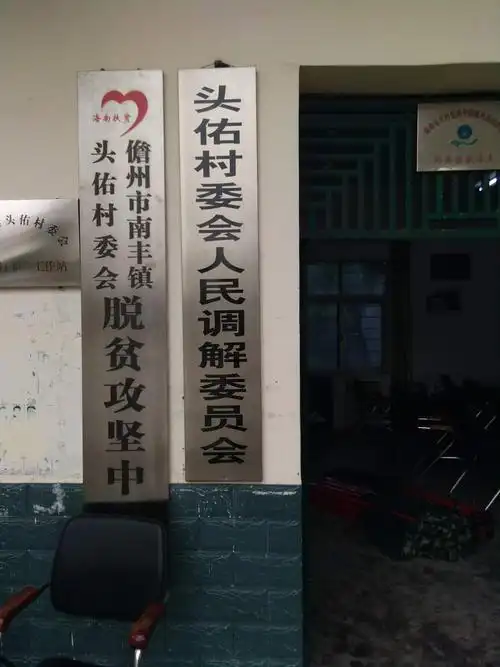 海南扶贫
儋州市南丰镇
头佑村委会
脱贫攻坚中
头佑村委会人民调解委员会
头佑村委会